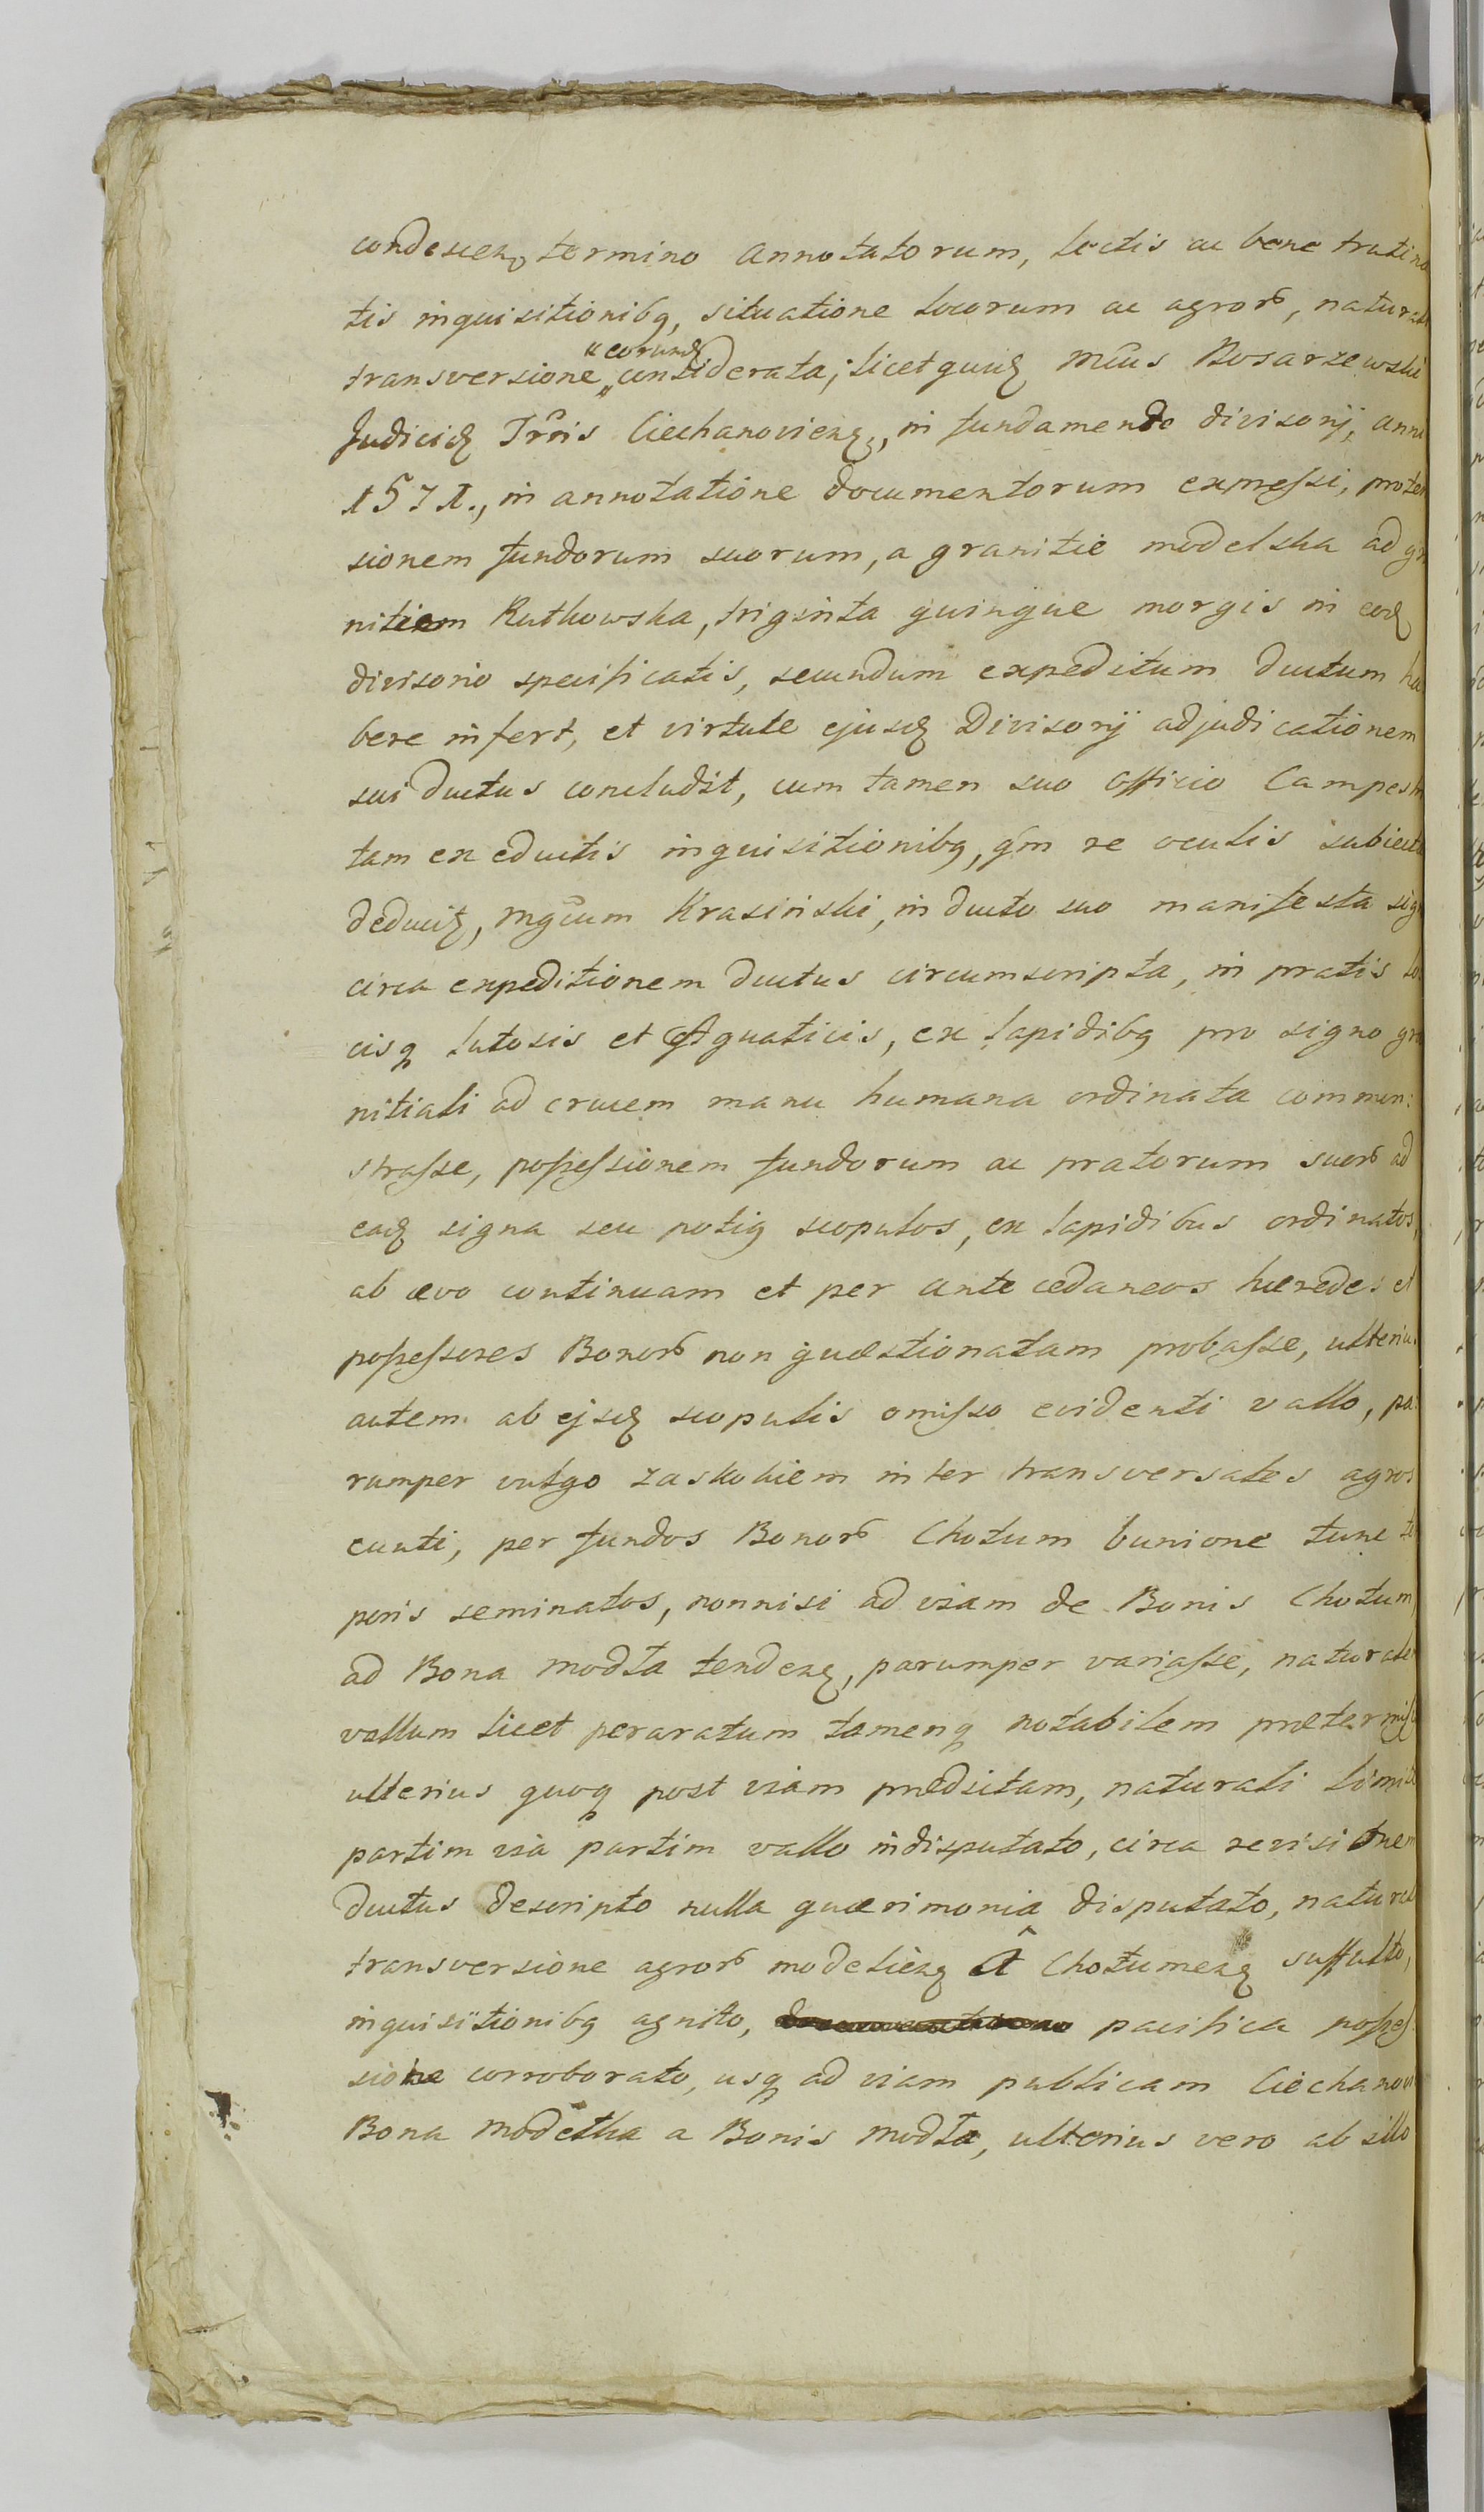 condescen, termino annotatorum, lectis ac bene trutina
tis inquisitionibq, situatione locorum ac agror̃, natura
transversione "eorundʒ considerata; licet quidʒ Mcus Bosarzewski
Judicidʒ Trr̃is Ciechanovienʒ, in fundamendo divisorij, anni
1571., in annotatione documentorum expressi, proten
sionem fundorum suorum, a granitie modelska ad gra
nitiem Rutkowska, triginta quinque morgis in eodʒ
divisorio specificatis, secundum expeditum ductum ha
bere infert, et virtute ejusdʒ Divisorij adjudicationem
sui ductus concludit, cum tamen suo officio Campestri
tam ex eductis inquisitionibq, qm̃ re oculis subiecta
deducit, Mgcum Krasiński, in ductu suo manifesta sig
circa expeditionem ductus circumscripta, in pratis lo
cisq lutosis et Aquaticis, ex lapidibq pro signo gra
nitiali ad crucem manu humana ordinata common:
strasse, possessionem fundorum ac pratorum suor̃ ad
eadʒ signa seu potiq scopulos, ex lapidibus ordinatos,
ab ævo continuam et per antecedaneos hæredes et
possessores Bonor̃ non quæstionatam probasse, ulterius
autem ab ejsdʒ scopulis omisso evidenti vallo, pa:
rumper vulgo zaskokiem inter transversales agros
eunti, per fundos Bonor̃ Chotum bunione tunc te
poris seminatos, nonnisi ad viam de Bonis Chotum
ad Bona Modła tendenʒ, parumper variasse, naturalem
vallum licet peraratum tamenq notabilem prætermiss
ulterius quoq post viam prædsitam, naturali limite
partim via partim vallo indisputato, circa revisionem
ductus descripto nulla quærimonia disputato, natural
transversione agror̃ modelienʒ A Chotumenʒ suffulto,
inquisitionibq agnito, pacifica posses
sione corroborato, usq ad viam publicam Ciechanovi
Bona Modełka a Bonis Modła, ulterius vero ab illo